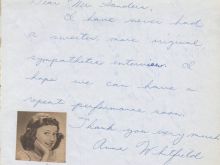 Dear Mr Sanders,
I have never had
a sweeter, more original
sympathetic interview. I
hope we can have a
repeat performance soon.
Thank you very much
Anna Whitfield